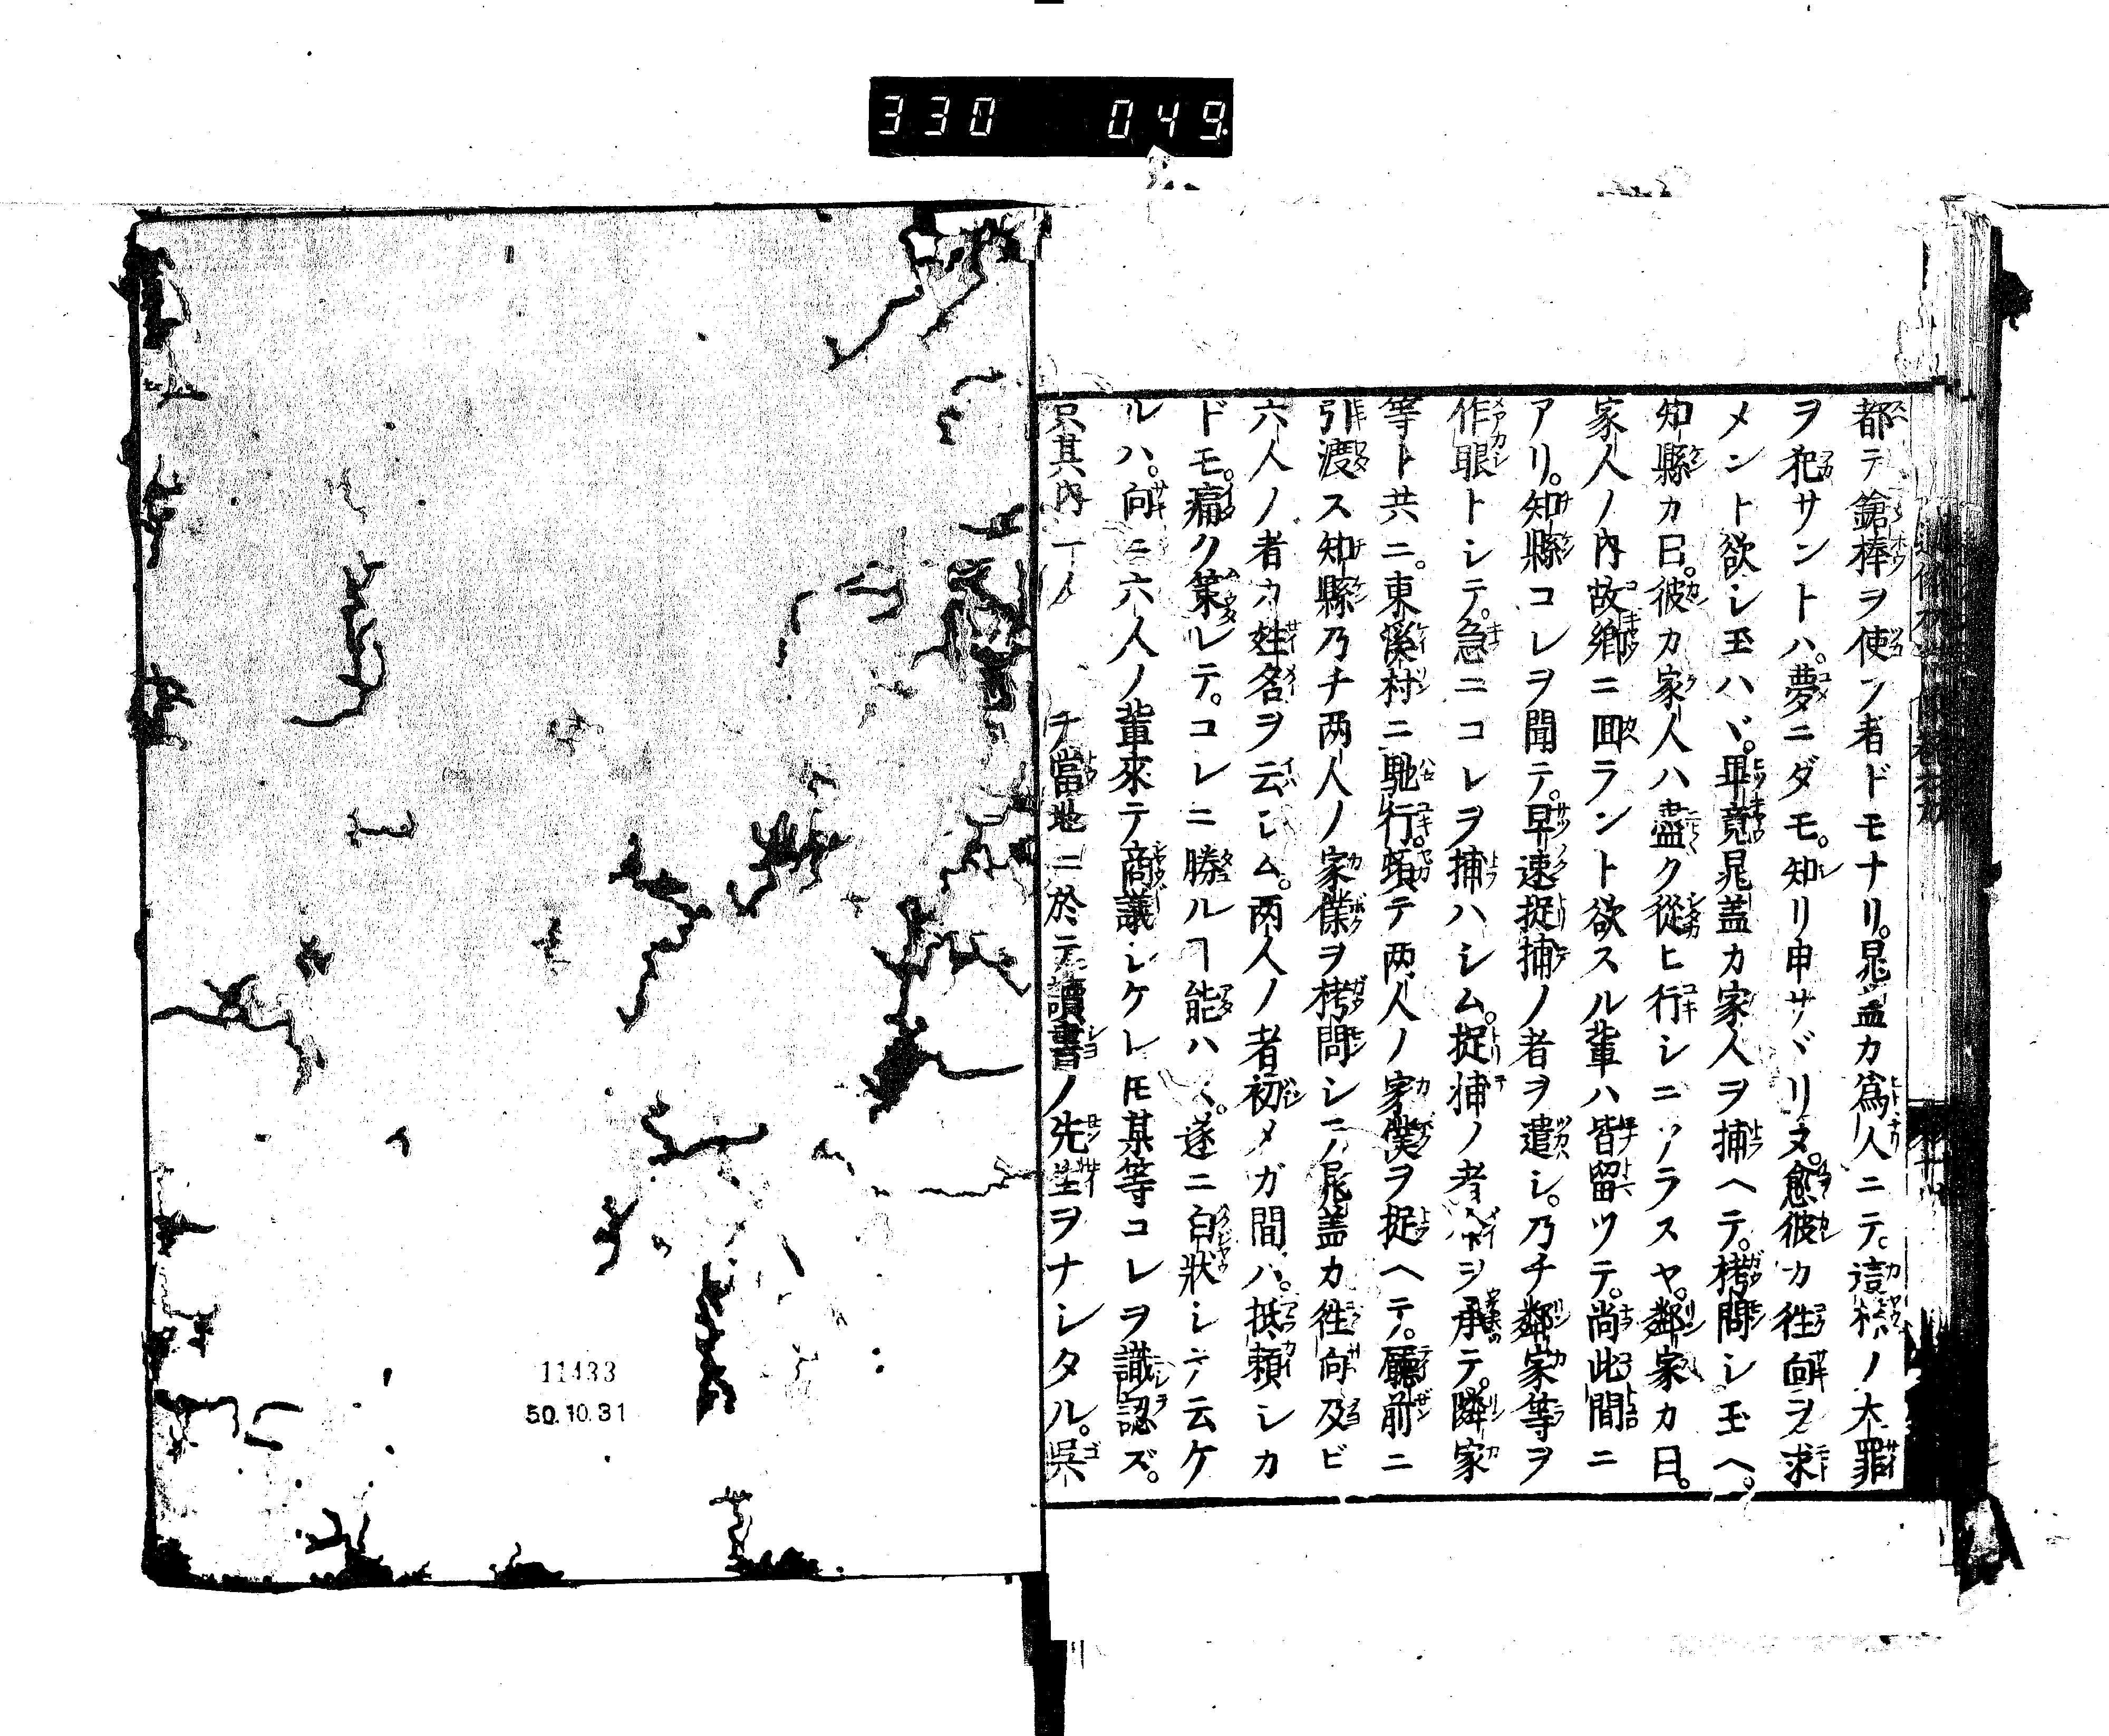 330 049
都テ鎗棒ヲ使フ者ドモナリ。晁蓋カ爲人ニテ。這樣ノ大罪
ヲ犯サントハ。夢ニダモ。知リ申サヾリヌ。愈彼カ徃向ヲ求
メント欲シ玉ハヾ。畢竟晁蓋カ家人ヲ捕ヘテ。拷問シ玉ヘ。
知縣カ曰。彼カ家人ハ盡ク從ヒ行シニアラスヤ。鄰家カ曰。
家人ノ內故鄉ニ回ラント欲スル輩ハ皆留ツテ。尚此間ニ
アリ。知縣コレヲ聞テ。早速捉捕ノ者ヲ遣シ。乃チ鄰家等ヲ
作眼トシテ。急ニコレヲ捕ハシム。捉捕ノ者 ヲ承テ。隣家
等ト共ニ。東溪村ニ馳行。頓テ兩人ノ家僕ヲ捉ヘテ。廳前ニ
引渡ス知縣乃チ兩人ノ家僕ヲ拷問シテ晁蓋カ徃向及ビ
六人ノ者カ姓名ヲ云シム。兩人ノ者初メガ間ハ。抵賴シカ
ドモ。痛ク策レテ。コレニ勝ルヿ能ハズ。遂ニ白狀シテ云ケ
ルハ。向ニ六人ノ輩來テ商議シケレ𪜈某等コレヲ識認ズ。
只其內一人 チ當地ニ於テ讀書ノ先生ヲナシタル。吳
11433
50.10.31